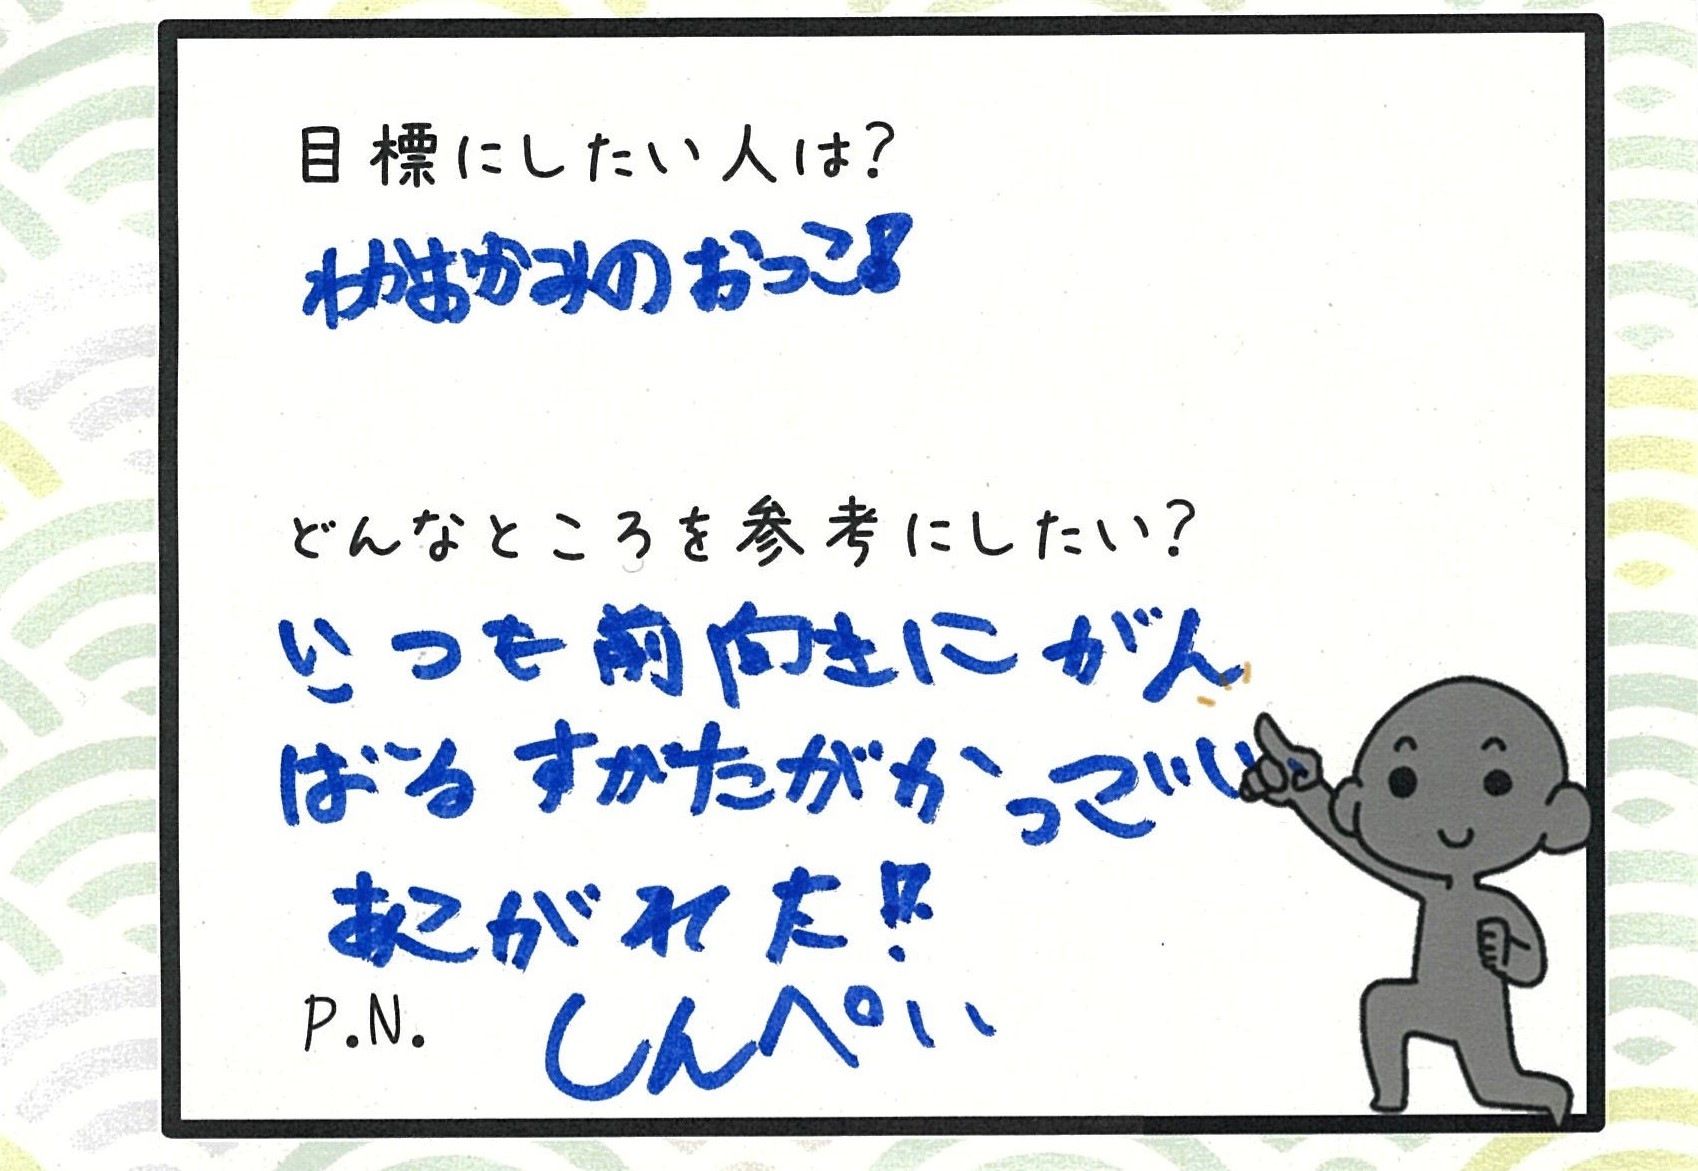 目標にしたい人は?
わかおかみのおっこ!
どんなところを参考にしたい?
いつも前向きにがん
ばるすがたがかっこいい
あこがれた!!
P.N. しんぺい